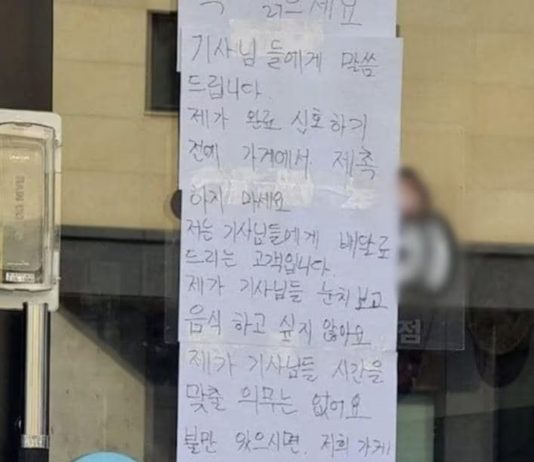 꼭 읽으세요
기사님들에게 말씀
드립니다.
제가 완료 신호하기
전에 가게에서 제촉
하지 마세요
저는 기사님들에게 배달료
드리는 고객입니다.
제가 기사님들 눈치 보고
음식 하고 싶지 않아요
제가 기사님들 시간을
맞출 의무는 없어요
불만 있으시면. 저희 가게
점